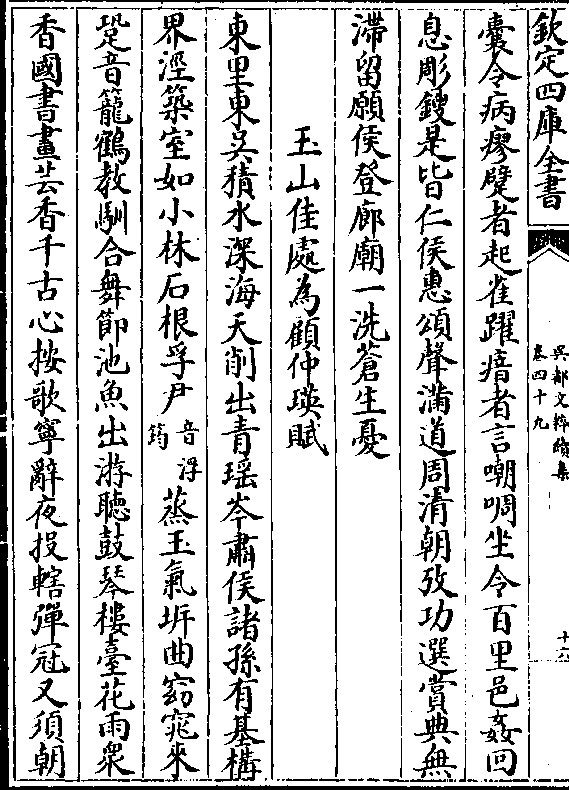 欽定四庫全書
吳都文粹續集
卷四十九
十六
囊令病瘳躄者起雀躍瘖者言嘲啁坐令百里邑姦回
息彫鎪是皆仁侯惠頌聲滿道周清朝攷功選賞典無
滯留願侯登廊廟一洗蒼生憂
玉山佳處為顧仲瑛賦
東里東吳積水深海天削出青瑶岑肅侯諸孫有基構
界溼築室如小林石根孚尹音浮筠蒸玉氣坼曲窈窕來
跫音籠鶴教馴合舞節池魚出游聽鼓琴樓臺花雨衆
香國書畫芸香千古心按歌寧辭夜投轄彈冠又須朝